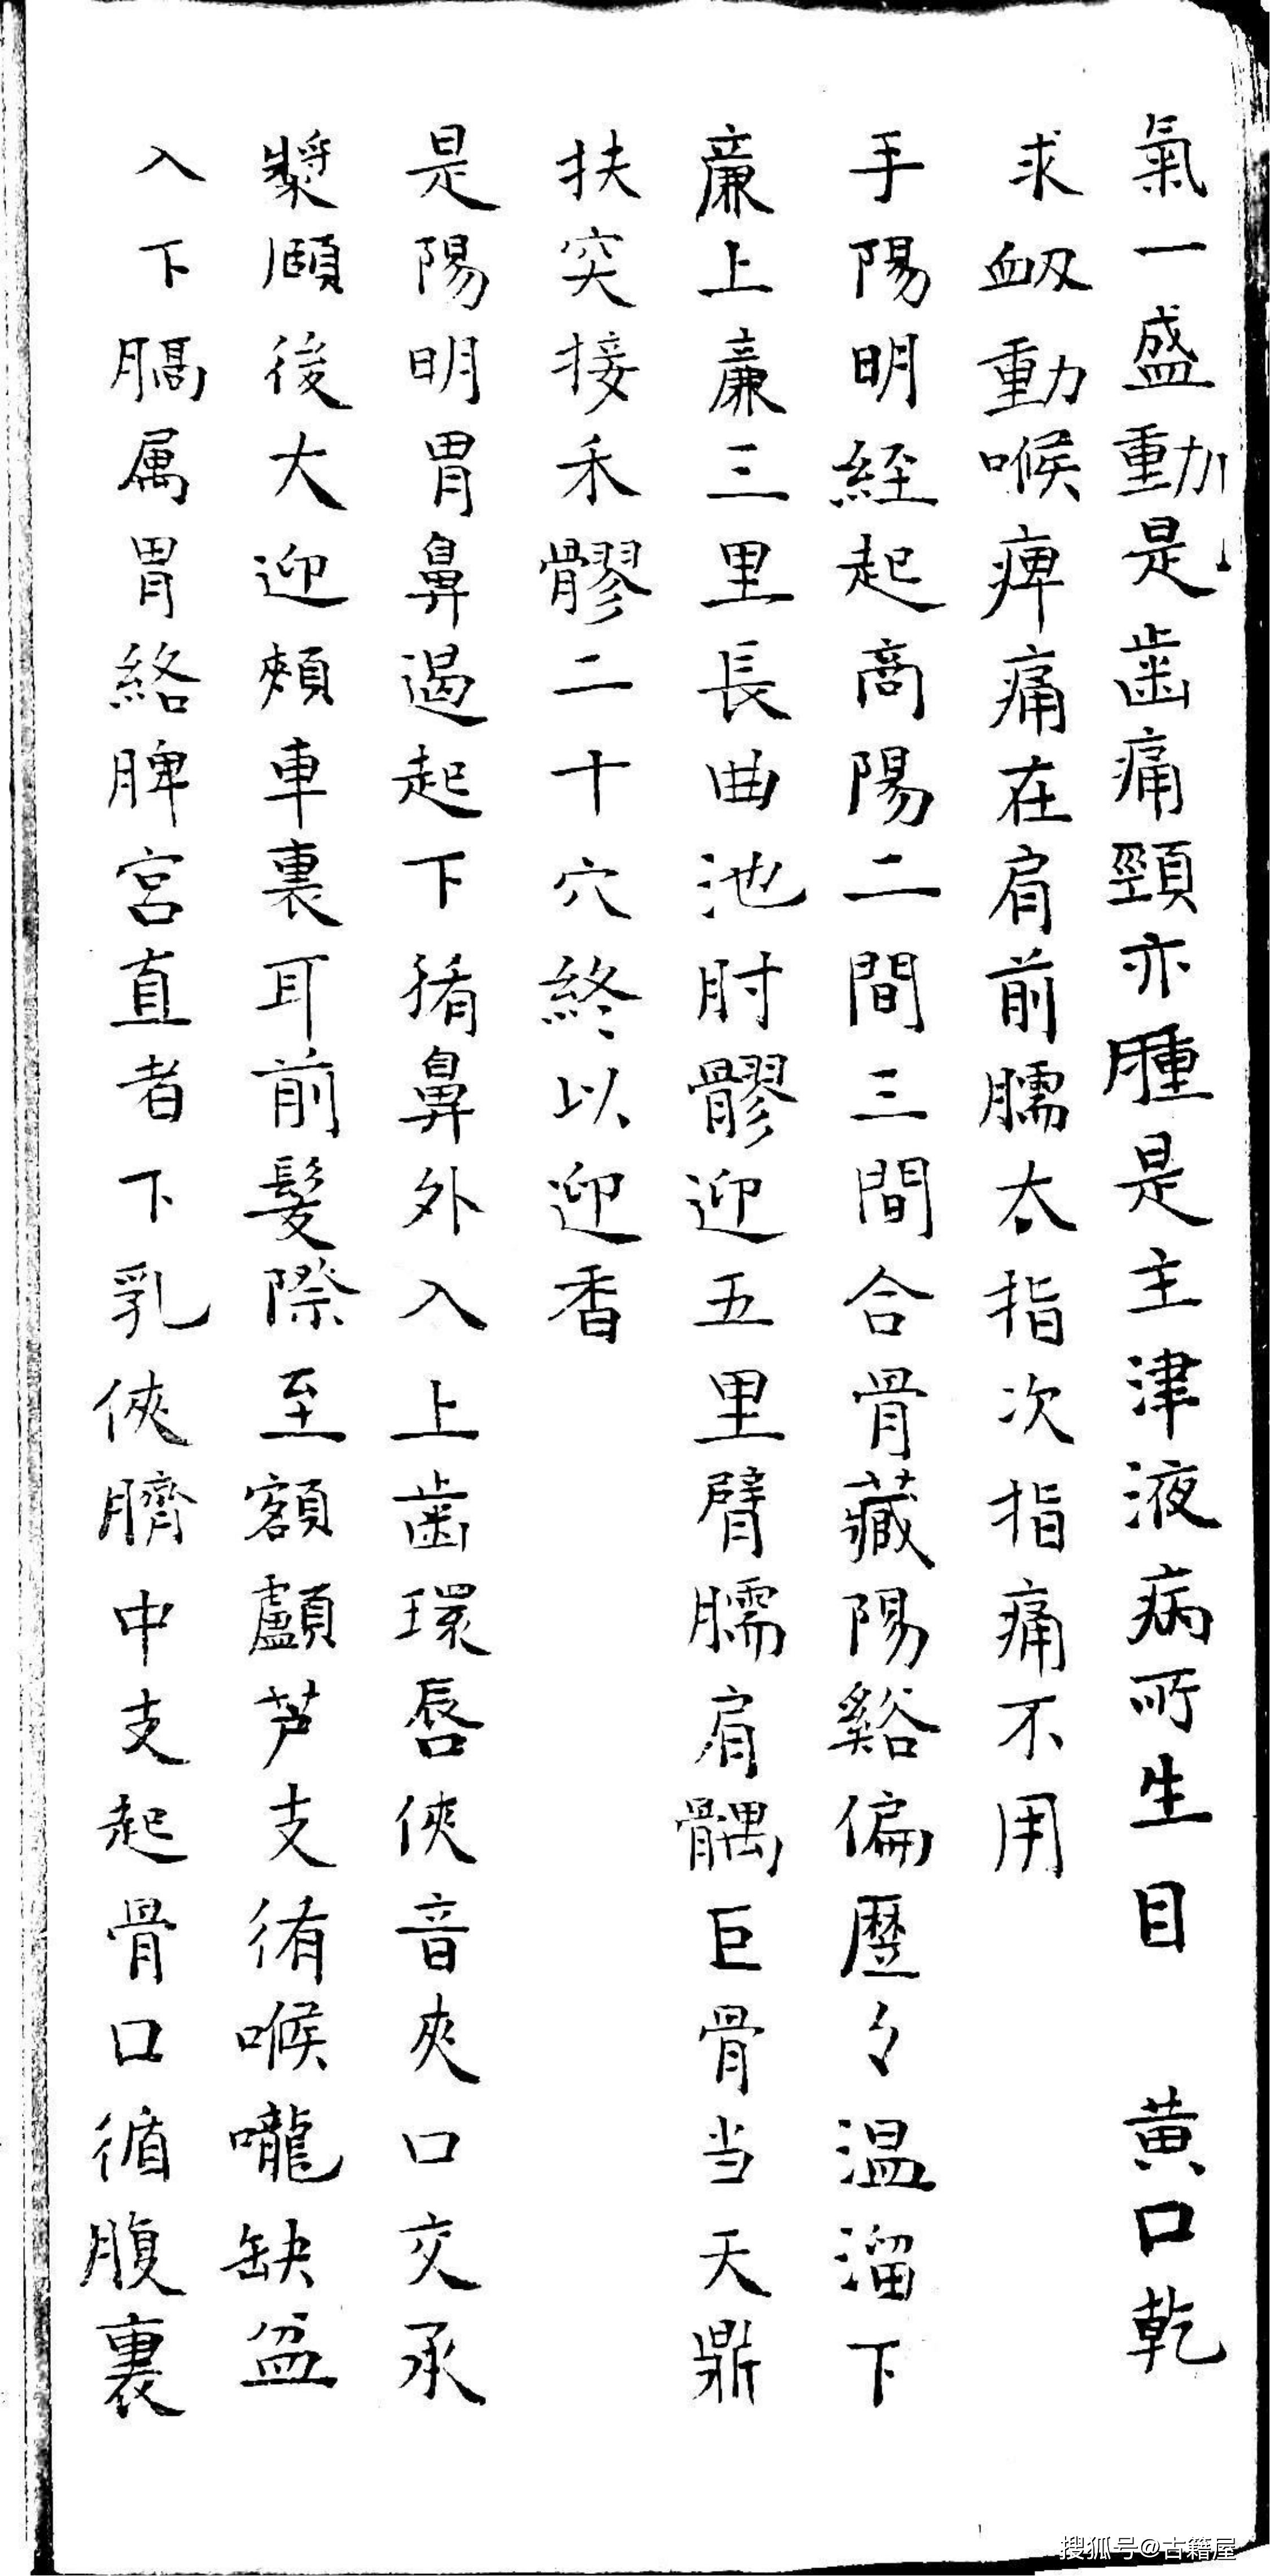 氣一盛動是齒痛頸亦腫是主津液病所生目 黄口乾
求衄動喉痺痛在肩前臑太指次指痛不用
手陽明經起商陽二間三間合骨藏陽谿偏歷々温溜下
廉上廉三里長曲池肘髎迎五里臂臑肩髃巨骨当天鼎
扶突接禾髎二十穴終以迎香
是陽明胃鼻遏起下循鼻外入上齒環唇俠音夾口交承
漿頤後大迎頰車裏耳前髮際至額顱芦支循喉嚨缺盆
入下膈属胃絡脾宮直者下乳俠臍中支起骨口循腹裏
搜狐号@古籍屋